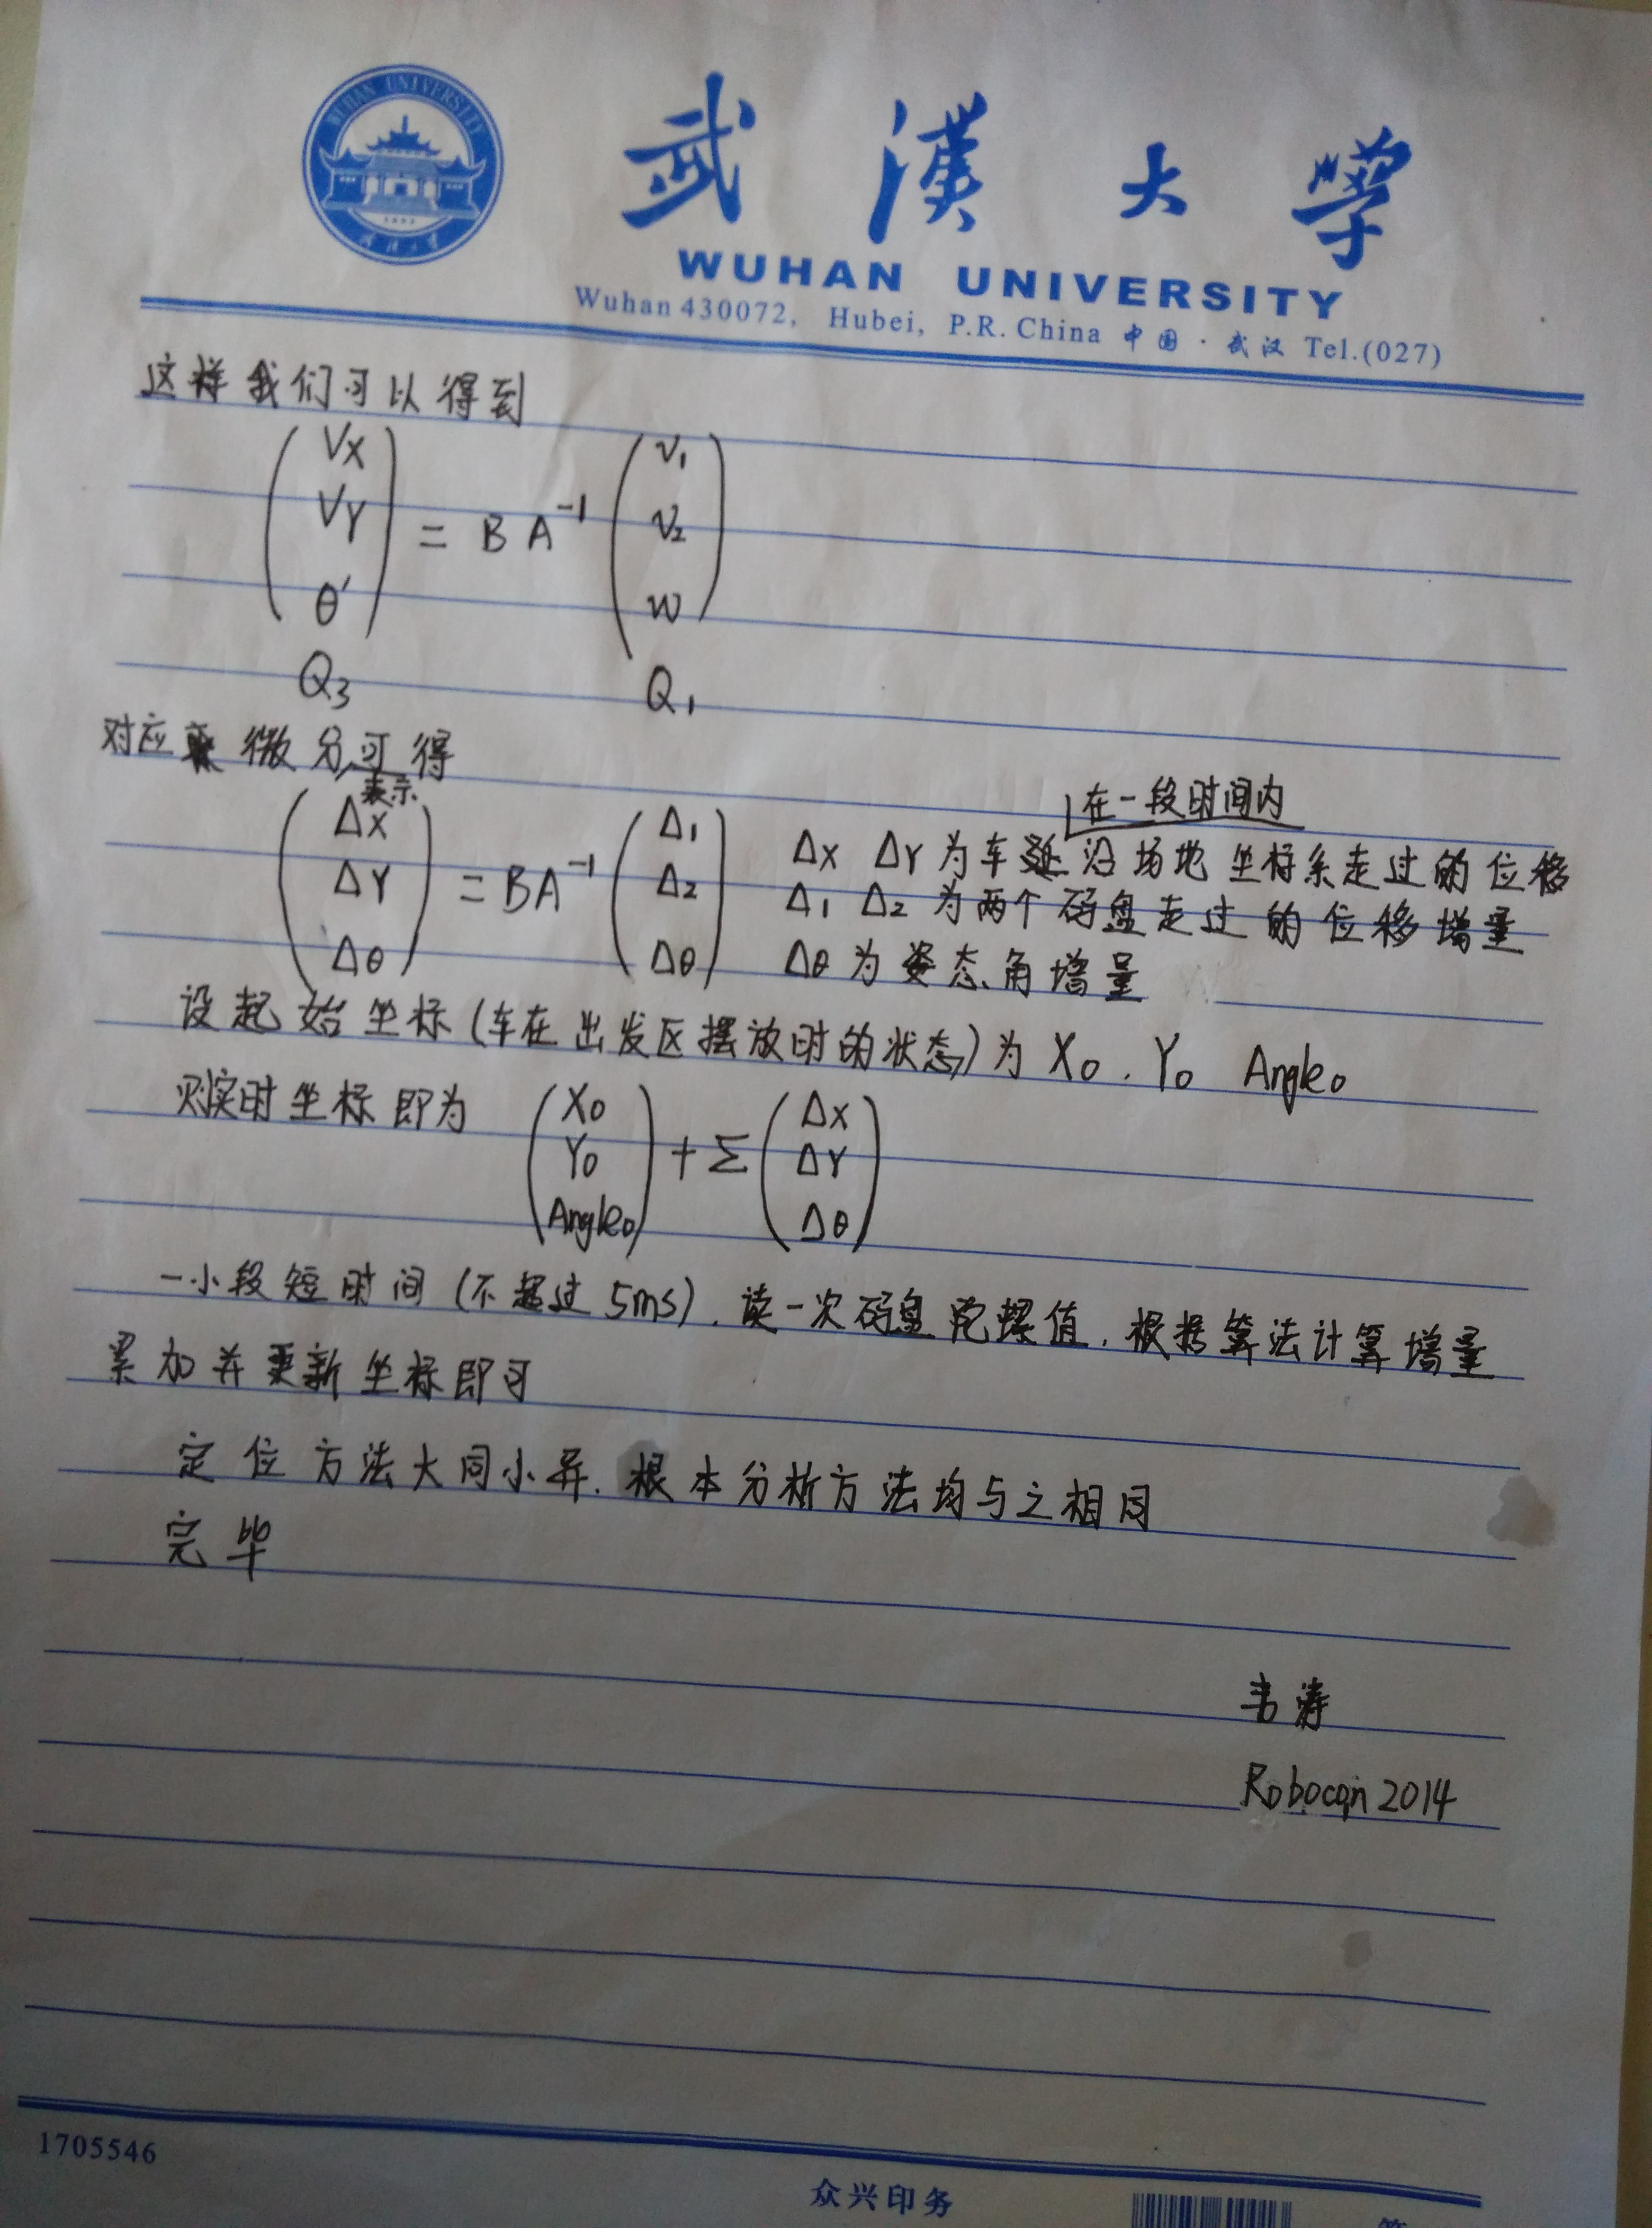 WUHAN UNIVERSITY
武漢大學
WUHAN UNIVERSITY
Wuhan 430072, Hubei, P.R. China 中国·武汉 Tel.(027)
这样我们可以得到
(VX VY θ′) = B A⁻¹ (v₁ v₂ w)
Q₃ Q₁
对应 微分表示可得
在一段时间内
(ΔX ΔY Δθ) = BA⁻¹ (Δ₁ Δ₂ Δθ)
ΔX ΔY 为车 沿场地坐标系走过的位移
Δ₁ Δ₂ 为两个码盘走过的位移增量
Δθ 为姿态角增量
设起始坐标(车在出发区摆放时的状态)为 X₀. Y₀ Angle₀
则实时坐标即为 (X₀ Y₀ Angle₀) + Σ (ΔX ΔY Δθ)
一小段短时间(不超过5ms).读一次码盘陀螺值.根据算法计算增量
累加并更新坐标即可
定位方法大同小异.根本分析方法均与之相同
完毕
韦涛
Robocon 2014
1705546
众兴印务